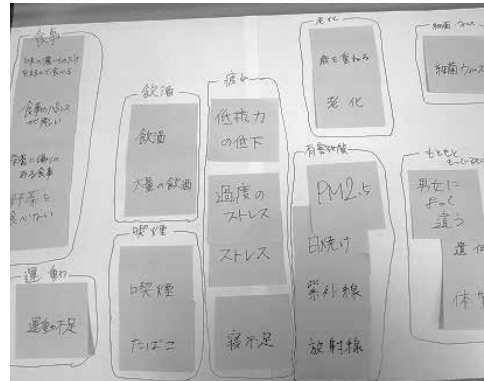 食事
味の濃いものだけ
を好んで食べる
食事のバランス
が悪い
栄養に偏りの
ある食事
野菜を
食べない
運動
運動不足
飲酒
飲酒
大量の飲酒
喫煙
喫煙
たばこ
疲れ
低抗力
の低下
過度の
ストレス
ストレス
寝不足
老化
歳を重ねる
老化
有害物質
PM2.5
日焼け
紫外線
放射線
細菌・ウィルス
細菌ウィルス
もともと
男女に
よって
違う
遺伝
体質